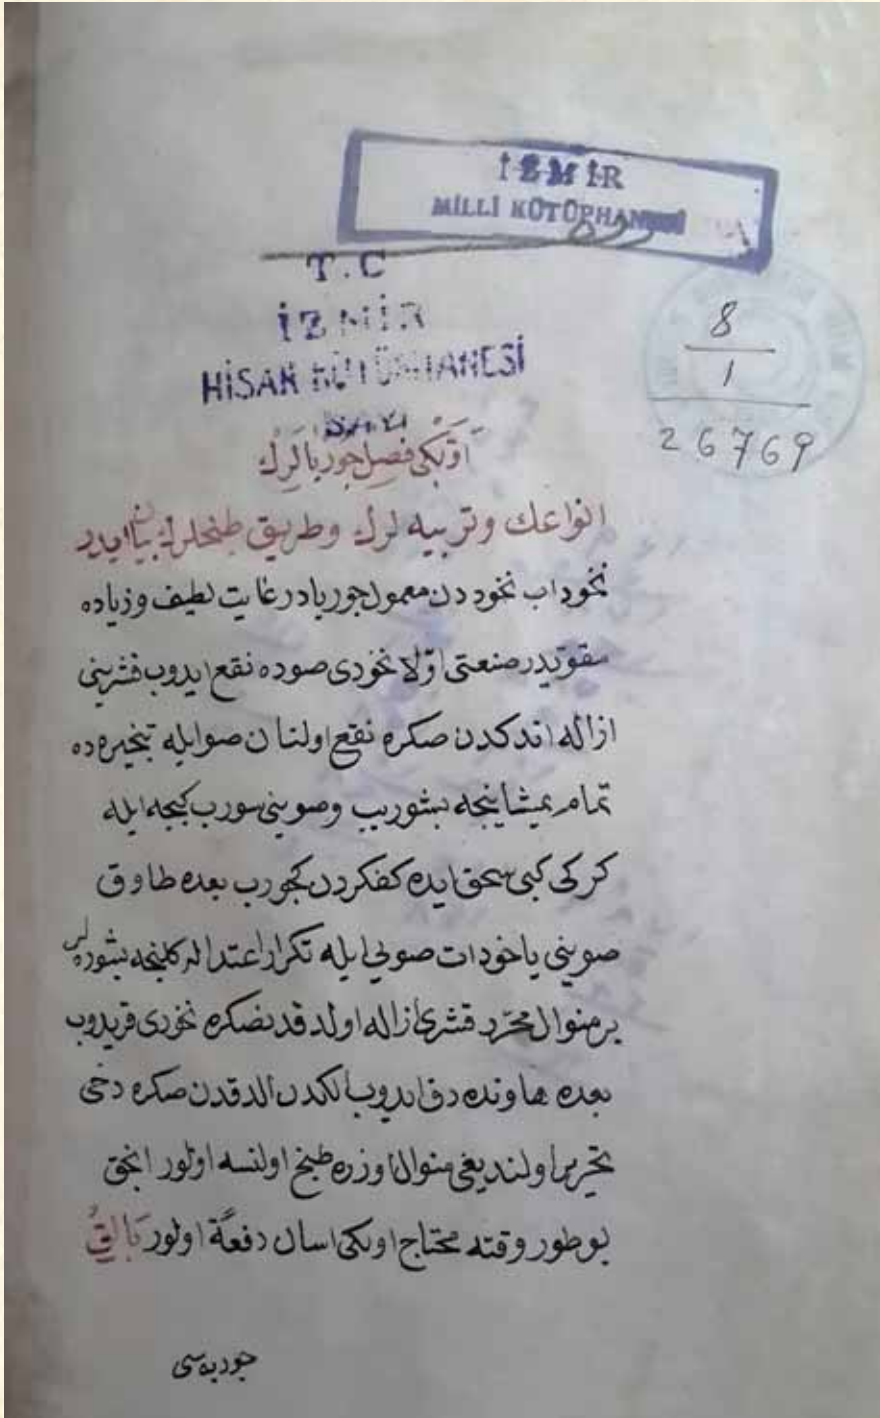 İZMİR
MİLLİ KÜTÜPHANESİ
T.C
İZMİR
HİSAR KÜTÜPHANESİ
SAYI
8
1
26769
اوّلكی فصل جوربالرك
انواعك وتربیه لرك وطریق طبخلرك بیان ایدر
نخوداب نخوددن معمول جوربادر غایت لطیف وزیاده
مقویدر صنعتی اوّلا نخودی صوده نقع ایدوب قشرینی
ازاله اتدكدن صكره نقع اولنان صوایله تنجیره ده
تمام پیشاینجه پشوریب وصوینی سورب كپچه ایله
كركی كبی سحق ایده كفكردن كچورب بعده طاوق
صوینی یاخود ات صویی ایله تكرار اعتداله كلینجه پشوره لر
برمنوال محرّر قشری ازاله اولدقدنصكره نخودی قریدوب
بعده هاونده دق ایدوب الكدن الدقدن صكره دخی
تحریر اولندیغی منوال اوزره طبخ اولنسه اولور انجق
بوطور وقته محتاج اولكی اسان دفعةً اولور بالق
جوربه سی